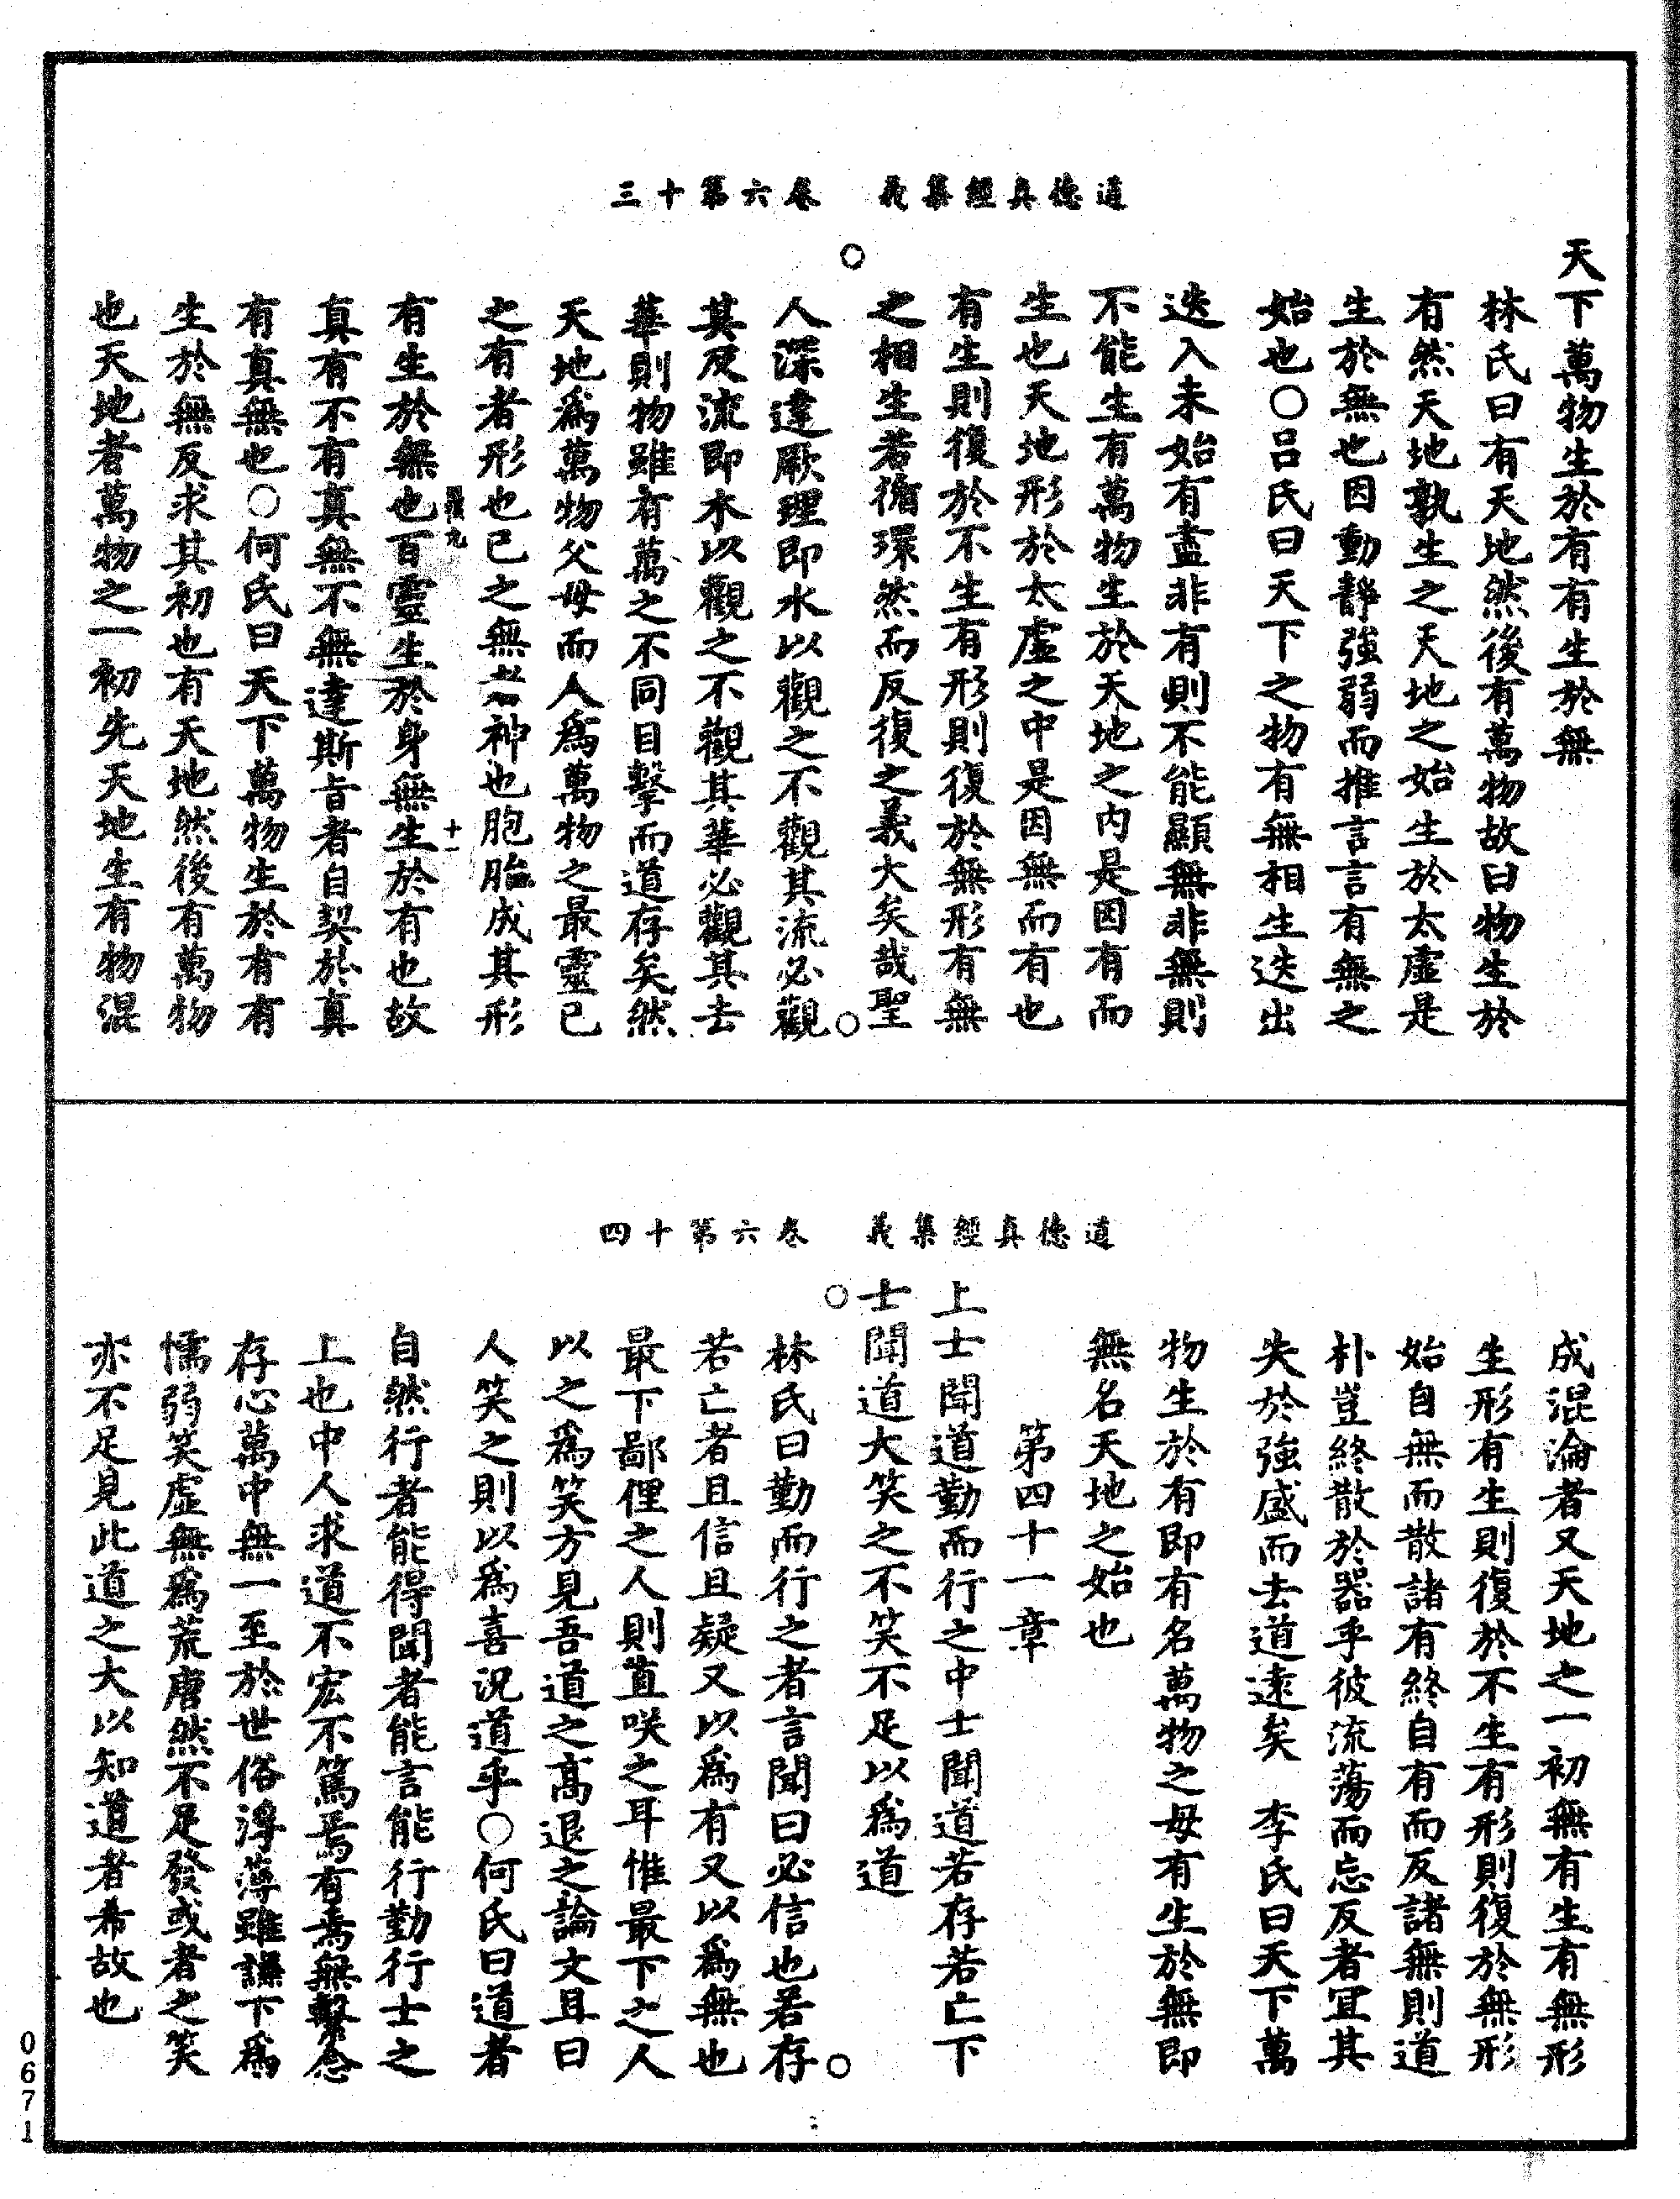 道德真經集義　卷六第十三
天下萬物生於有有生於無
林氏曰有天地然後有萬物故曰物生於
有然天地孰生之天地之始生於太虛是
生於無也因動靜強弱而推言言有無之
始也○呂氏曰天下之物有無相生迭出
迭入未始有盡非有則不能顯無非無則
不能生有萬物生於天地之內是因有而
生也天地形於太虛之中是因無而有也
有生則復於不生有形則復於無形有無
之相生若循環然而反復之義大矣哉聖
人深達厥理即水以觀之不觀其流必觀
其及流即木以觀之不觀其華必觀其去
華則物雖有萬之不同目擊而道存矣然
天地爲萬物父母而人爲萬物之最靈已
之有者形也已之無者神也胞胎成其形
十一
有生於無也百靈生於身無生於有也故
真有不有真無不無達斯旨者自契於真
有真無也○何氏曰天下萬物生於有有
生於無反求其初也有天地然後有萬物
也天地者萬物之一初先天地生有物混
道德真經集義　卷六第十四
成混淪者又天地之一初無有生有無形
生形有生則復於不生有形則復於無形
始自無而散諸有終自有而反諸無則道
朴豈終散於器乎彼流蕩而忘反者冝其
失於強盛而去道遠矣　李氏曰天下萬
物生於有即有名萬物之母有生於無即
無名天地之始也
第四十一章
上士聞道勤而行之中士聞道若存若亡下
士聞道大笑之不笑不足以爲道
林氏曰勤而行之者言聞曰必信也若存
若亡者且信且疑又以爲有又以爲無也
最下鄙俚之人則直咲之耳惟最下之人
以之爲笑方見吾道之高退之論文且曰
人笑之則以爲喜況道乎○何氏曰道者
自然行者能得聞者能言能行勤行士之
上也中人求道不宏不篤焉有焉無繫念
存心萬中無一至於世俗浮薄雖謙下爲
懦弱笑虛無爲荒唐然不足發或者之笑
亦不足見此道之大以知道者希故也
0671